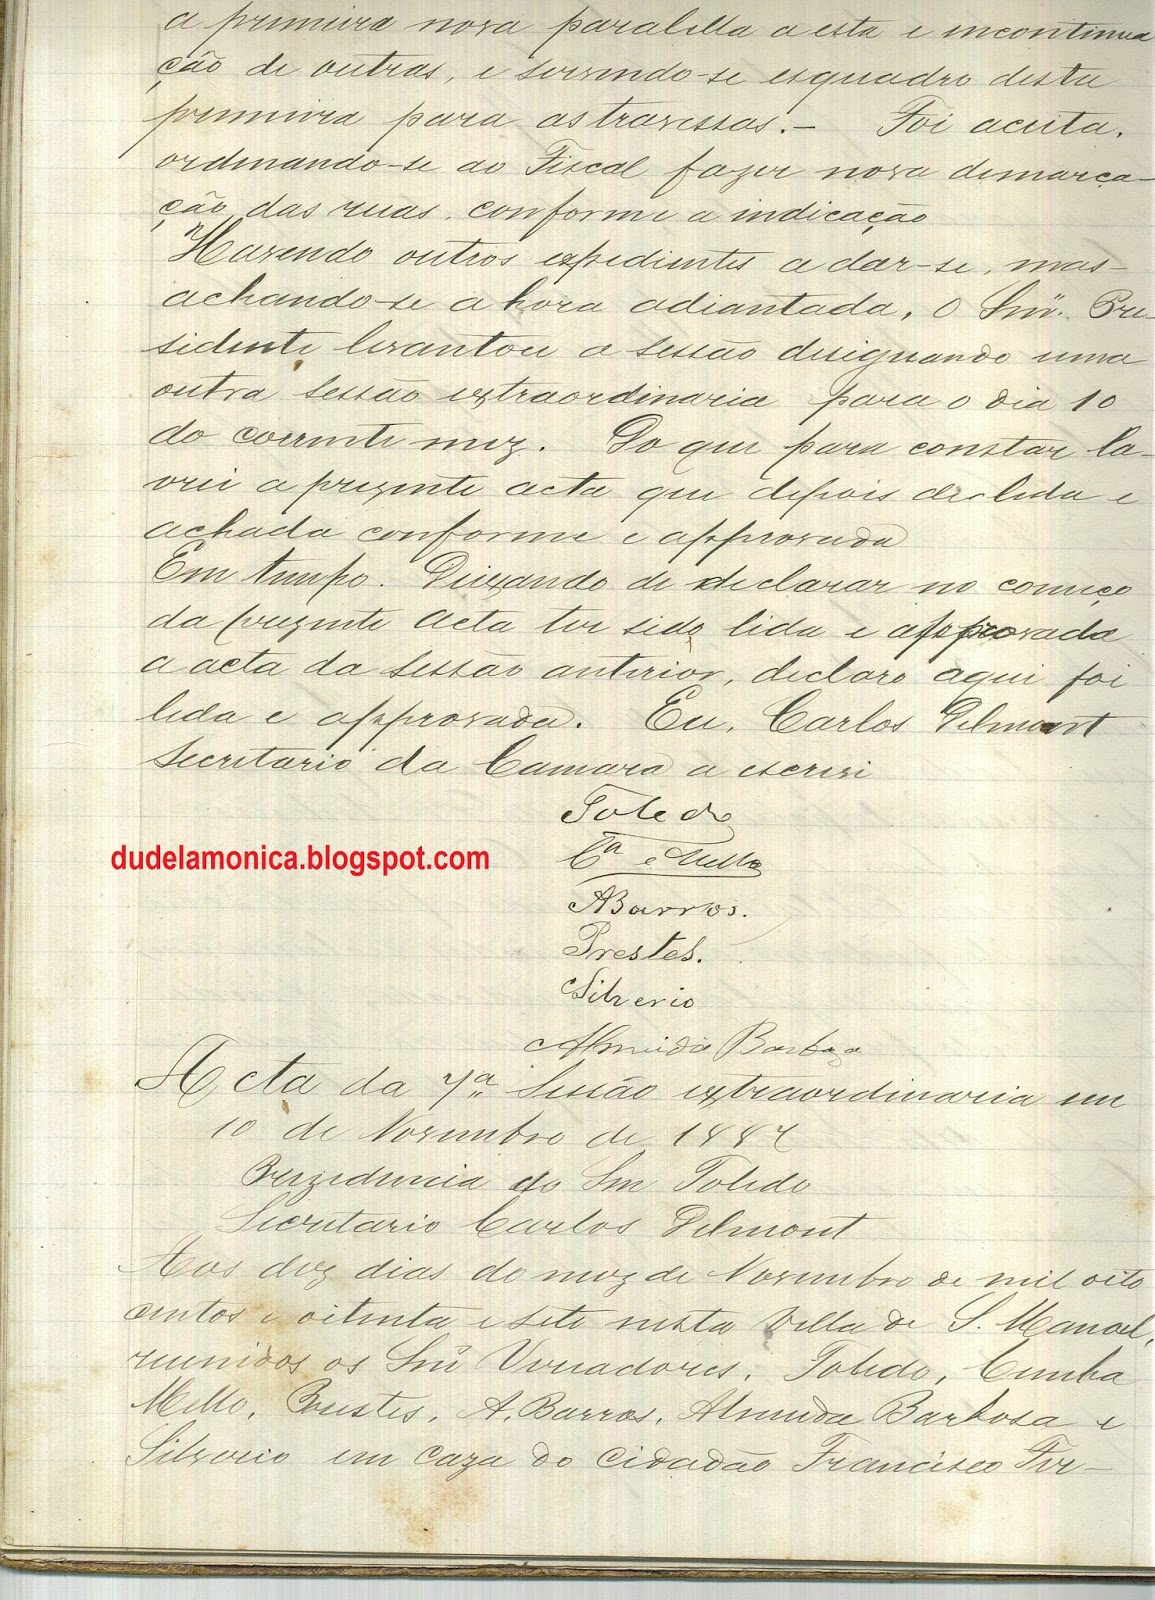 a primeira nova paralella a esta e incontinua
ção de outras, e servindo-se esquadro desta
primeira para as travessas. — Foi aceita,
ordenando-se ao Fiscal fazer nova demarca-
ção das ruas, conforme a indicação
Havendo outros expedientes a dar-se, mas-
achando-se a hora adiantada, o Snr. Pre-
sidente levantou a sessão designando uma
outra sessão extraordinaria para o dia 10
do corrente mez. Do que para constar la-
vrei a prezente acta que depois de lida e
achada conforme e approvada
Em tempo. Deixando de declarar no começo
da prezente acta ter sido lida e approvada
a acta da sessão anterior, declaro aqui foi
lida e approvada. Eu, Carlos Delmont
Secretario da Camara a escrevi
Toledo
Ca e Mello
dudelamonica.blogspot.com
A Barros.
Prestes.
Silverio
Almeida Barboza
Acta da 7a Sessão extraordinaria em
10 de Novembro de 1887
Prezidencia do Snr Toledo
Secretario Carlos Delmont
Aos dez dias do mez de Novembro de mil oito
centos e oitenta e sete nesta Villa de S. Manoel,
reunidos os Snrs Vereadores, Toledo, Cunha
Mello, Prestes, A. Barros, Almeida Barbosa e
Silverio em caza do Cidadão Francisco Fer-